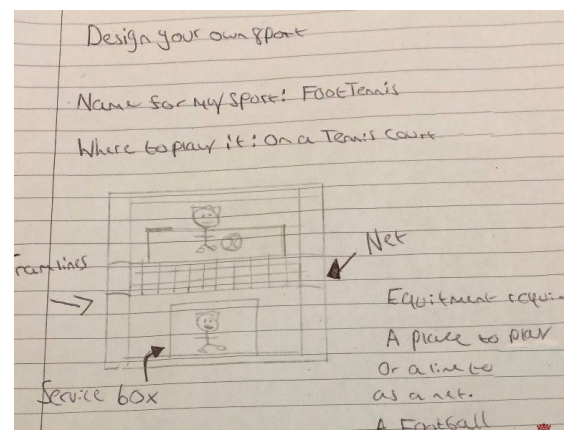 Design your own sport
Name for my sport: FootTennis
Where to play it: On a Tennis court
Net
Tramlines
Equitment requi
A place to play
Or a line to
as a net.
Service box
A Football